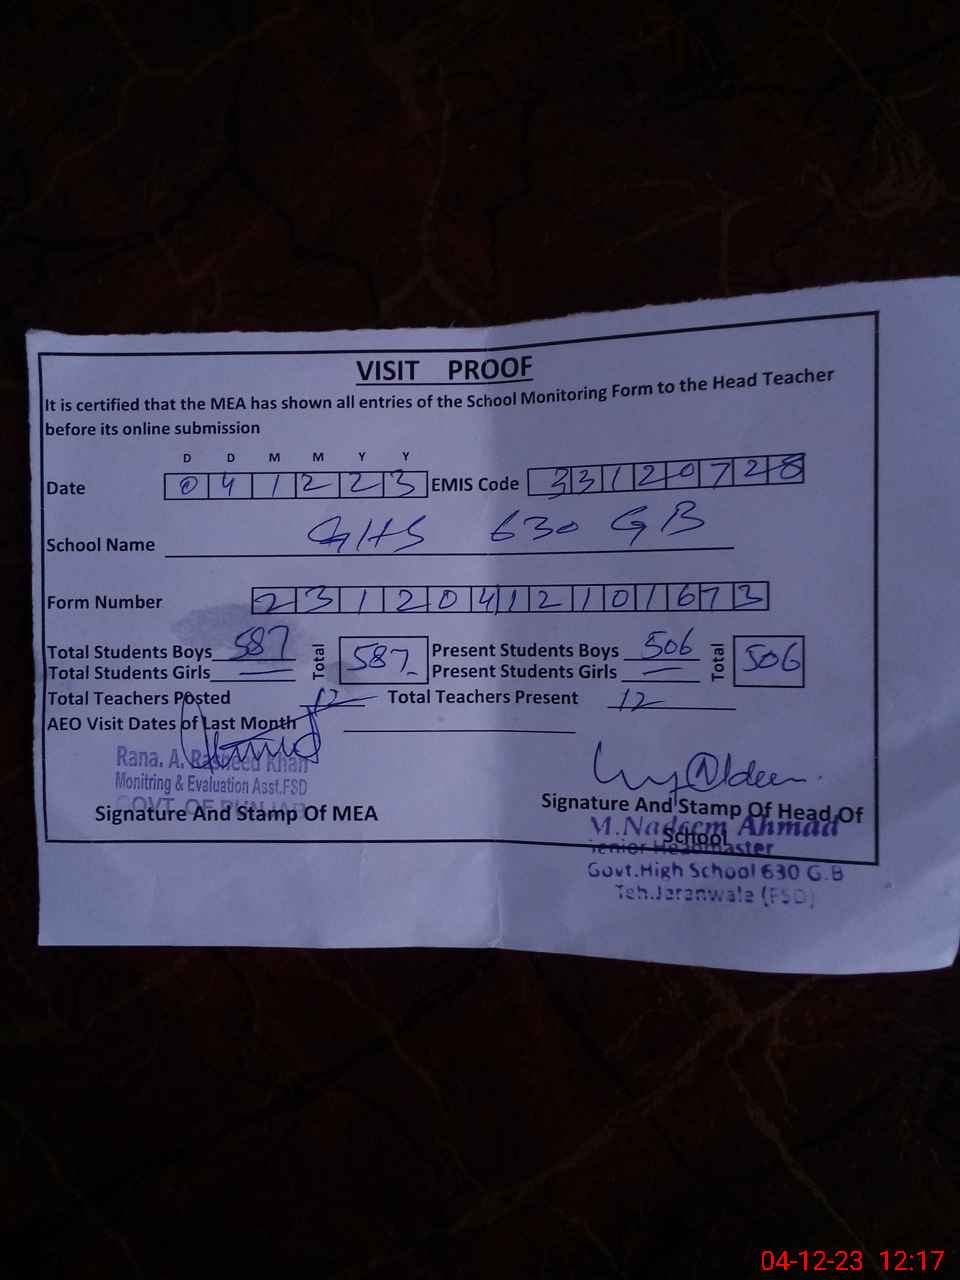 VISIT PROOF
It is certified that the MEA has shown all entries of the School Monitoring Form to the Head Teacher
before its online submission
D D M M Y Y
Date 0 4 1 2 2 3 EMIS Code 3 3 1 2 0 7 2 8
School Name GHS 630 GB
Form Number 2 3 1 2 0 4 1 2 1 0 1 6 7 3
Total Students Boys 587 Total 587 Present Students Boys 506 Total 506
Total Students Girls — Present Students Girls —
Total Teachers Posted 12 Total Teachers Present 12
AEO Visit Dates of Last Month
Rana. A. Rasheed Khan
Monitring & Evaluation Asst.FSD
GOVT. OF PUNJAB
Signature And Stamp Of MEA
Signature And Stamp Of Head Of
School
M.Nadeem Ahmad
Senior Headmaster
Govt.High School 630 G.B
Teh.Jaranwala (FSD)
04-12-23 12:17